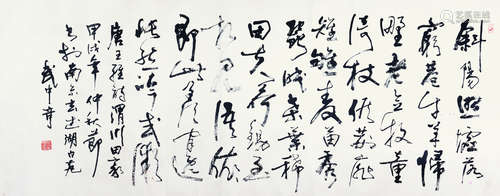 斜陽照墟落
窮巷牛羊歸
野老念牧童
倚杖候荊扉
雉雊麥苗秀
蠶眠桑葉稀
田夫荷鋤至
相見語依依
即此羨閒逸
悵然吟式微
唐王維詩渭川田家
甲戌年仲秋節
書於南京玄武湖白苑
武中奇